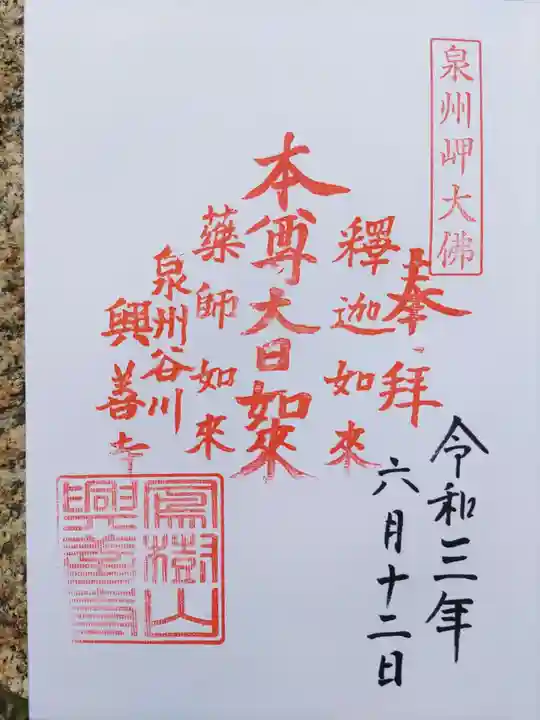 泉州岬大佛
奉拝
令和三年
六月十二日
釋迦如来
本尊大日如来
藥師如来
泉州谷川
興善寺
宝樹山
興善寺